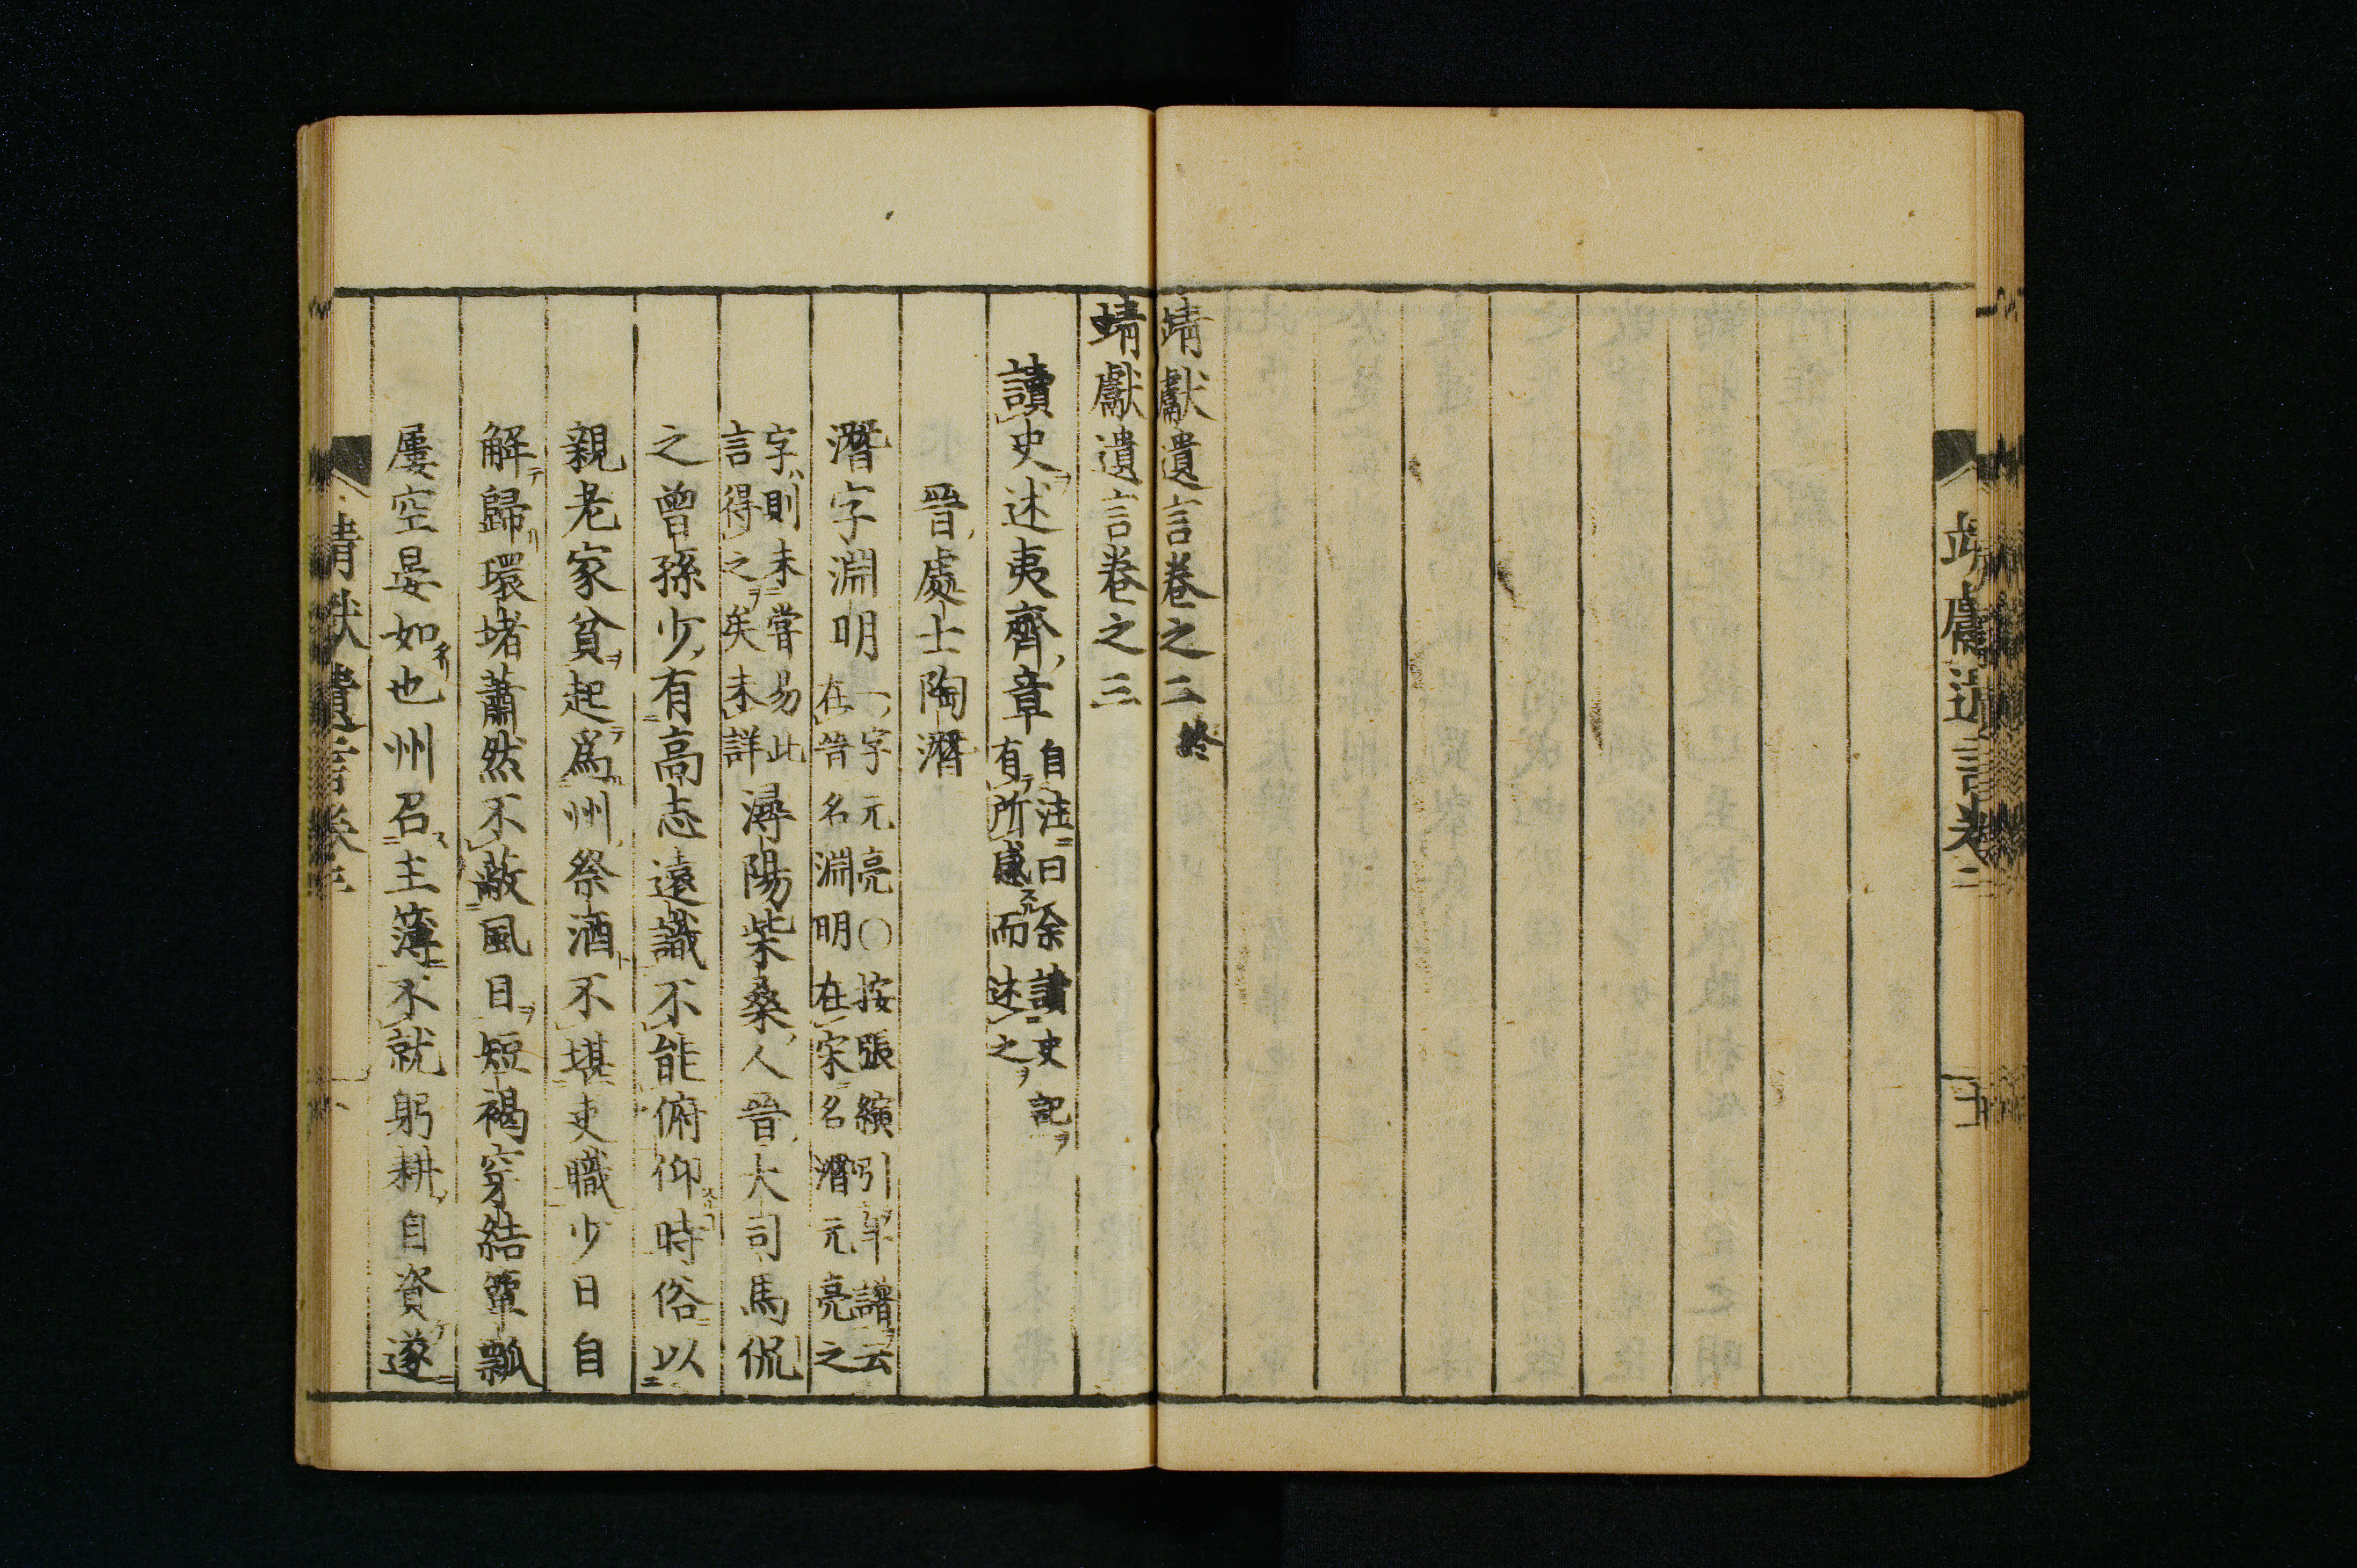 靖獻遺言卷之二終
靖獻遺言卷之三
讀史述夷齊章 自注曰余讀史記
有所感而述之
晉處士陶潛
潛字淵明 一字元亮〇按張縯引年譜云
在晉名淵明在宋名潛元亮之
字則未嘗易此
言得之矣未詳 潯陽柴桑人晉大司馬侃
之曾孫少有高志遠識不能俯仰時俗以
親老家貧起爲州祭酒不堪吏職少日自
解歸環堵蕭然不蔽風日短褐穿結簞瓢
屢空晏如也州召主簿不就躬耕自資遂